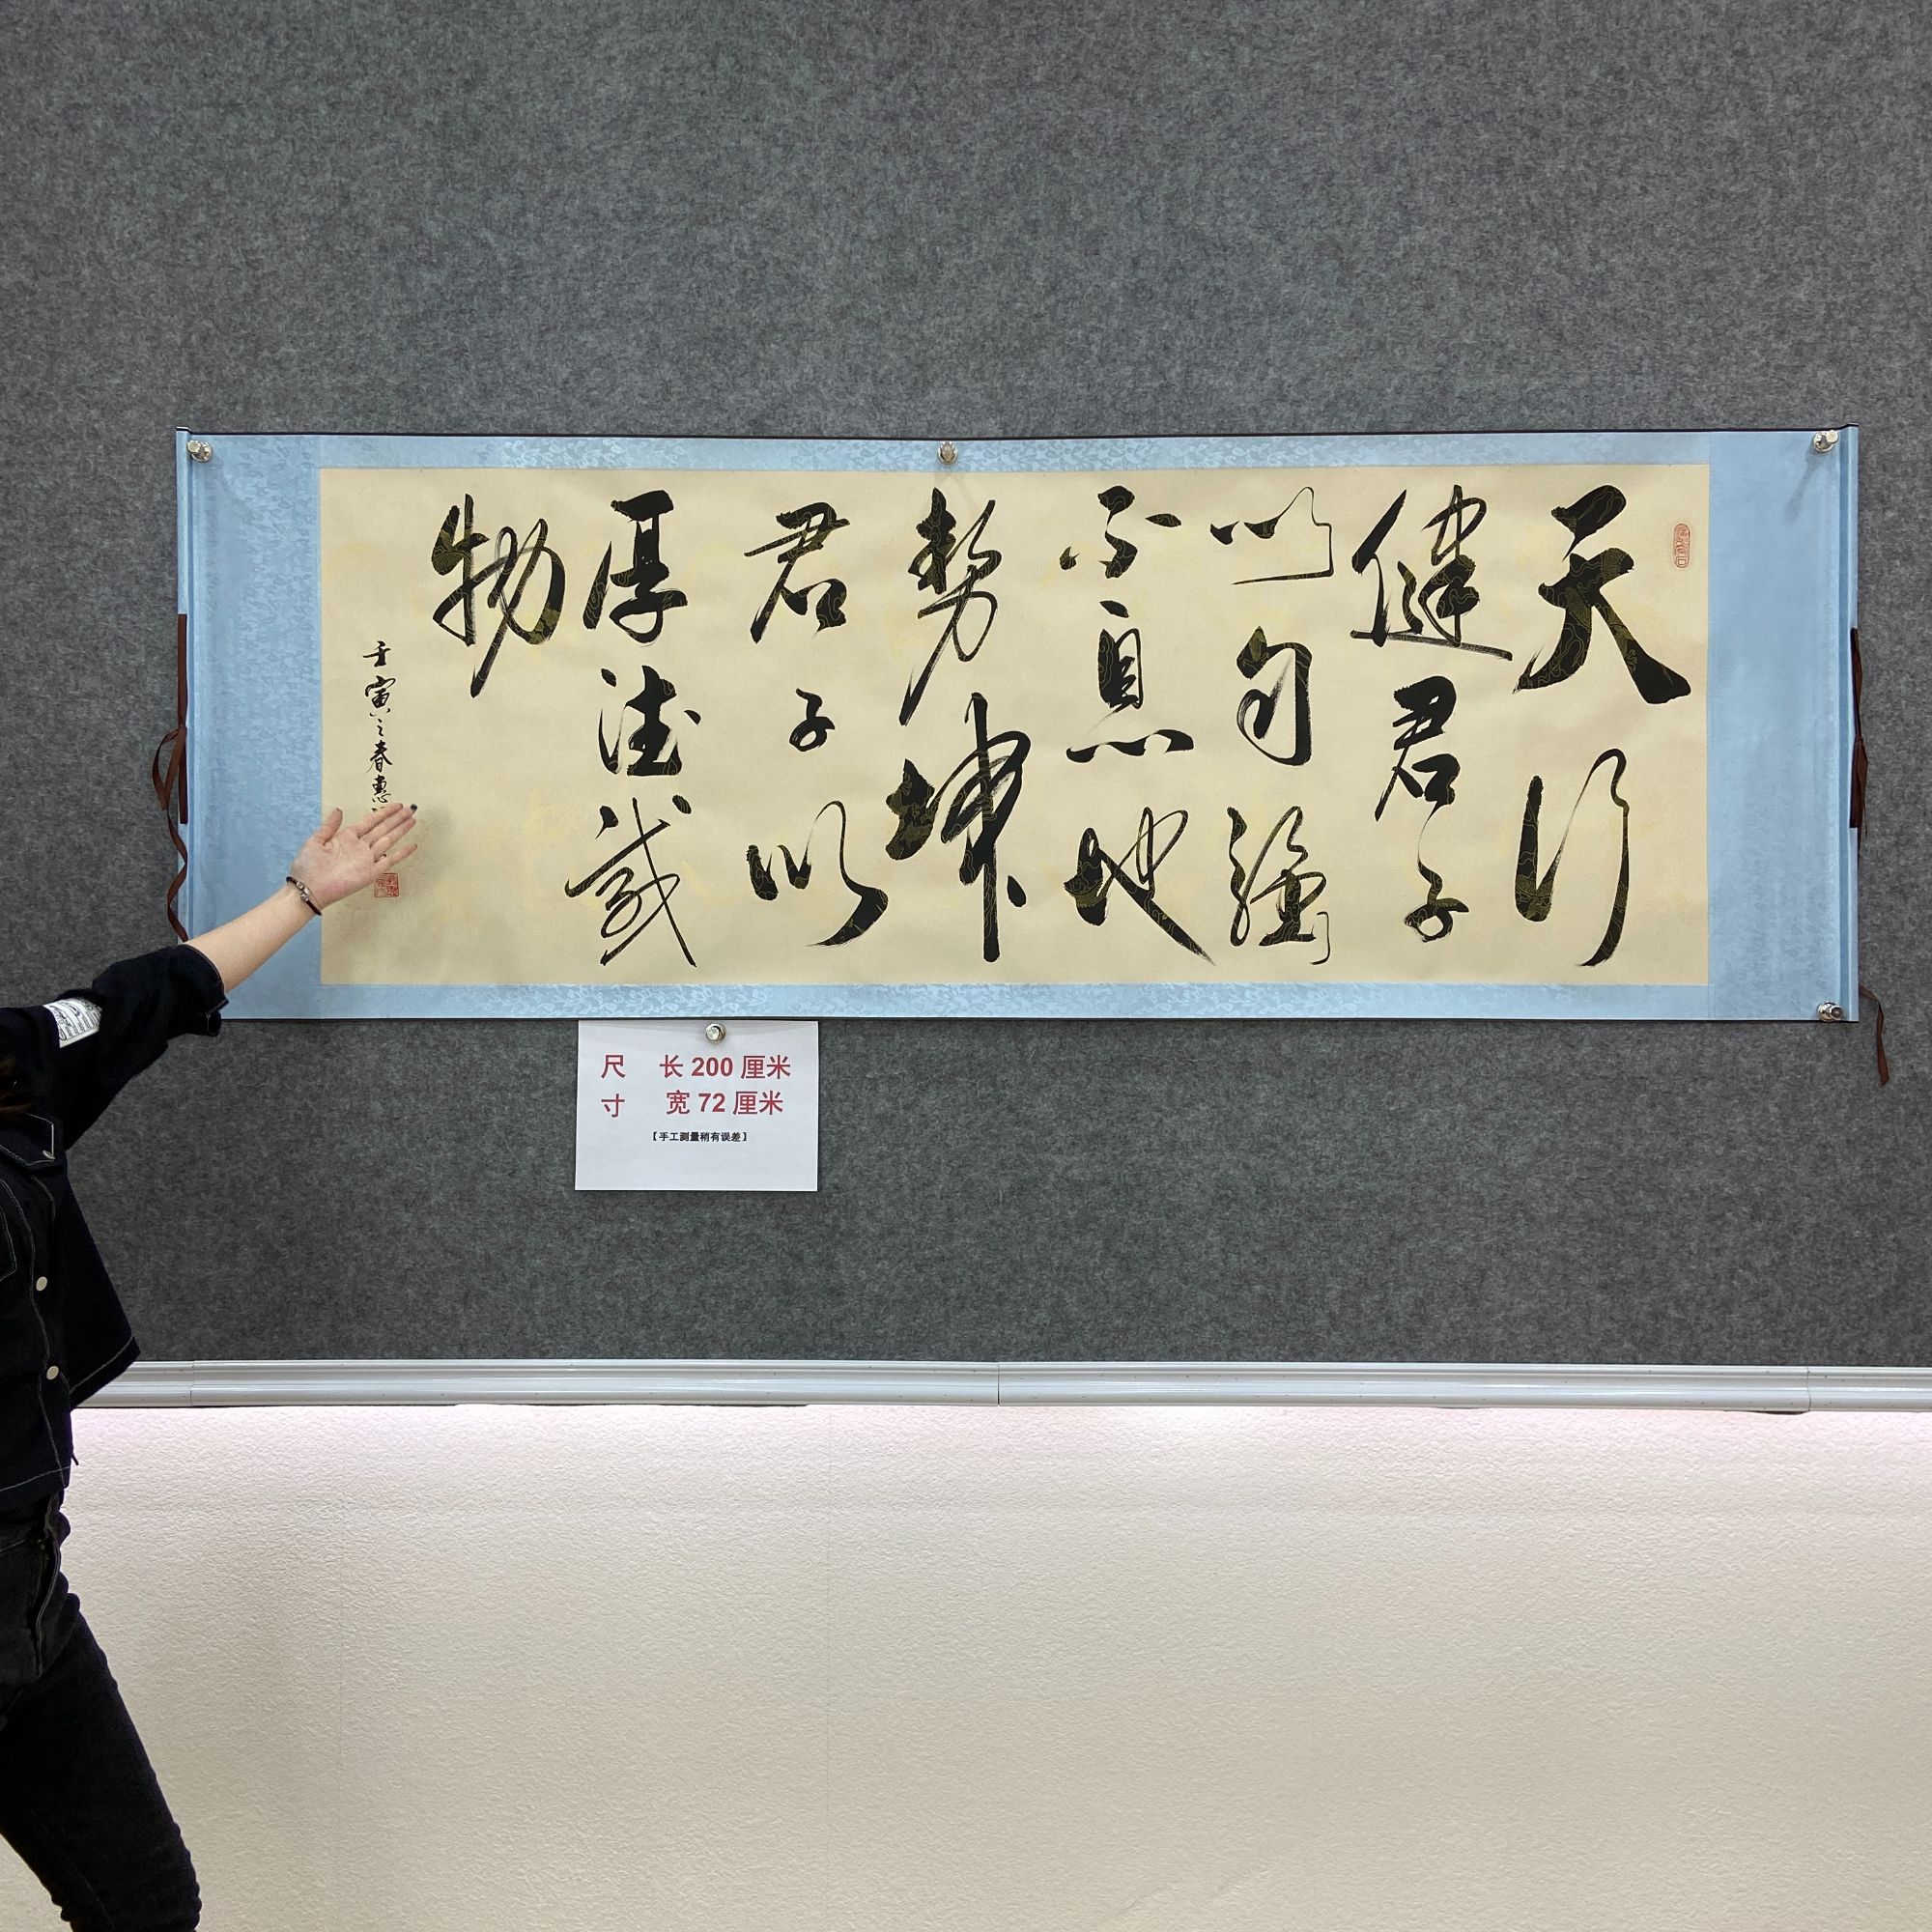 天行
健君子
以自強
不息地
势坤
君子以
厚德載
物
壬寅之春惠
尺 长 200 厘米
寸 宽 72 厘米
【手工测量稍有误差】